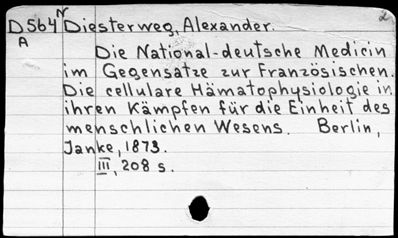 N 2
D564 Diesterweg, Alexander.
A
Die National-deutsche Medicin
im Gegensatze zur Französischen.
Die cellulare Hämatophysiologie in
ihren Kämpfen für die Einheit des
menschlichen Wesens. Berlin,
Janke, 1873.
III, 208 s.